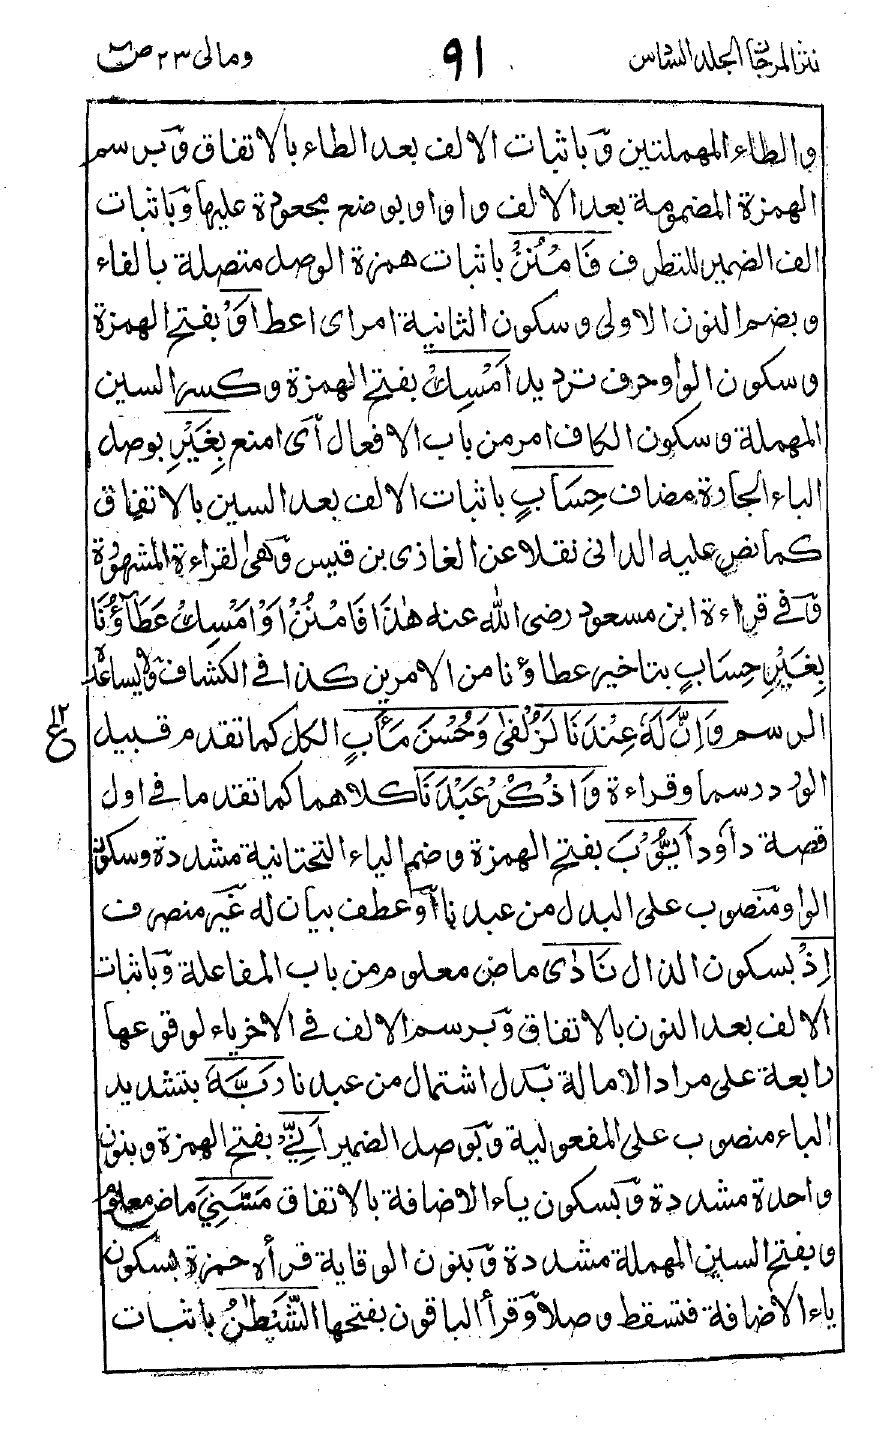 نثر المرجان الجلد السادس ٩١ ومالى ٢٣ ص
والطاء المهملتين وَباثبات الالف بعد الطاء بالاتفاق وَبرسم
الهمزة المضمومة بعد الالف واوا وبوضع مجعودة عليها وَباثبات
الف الضمير للتطرف فَامْنُنْ باثبات همزة الوصل متصلة بالفاء
وبضم النون الاولى وسكون الثانية امر اى اعط اَوْ بفتح الهمزة
وسكون الواو حرف ترديد اَمْسِكْ بفتح الهمزة وكسر السين
المهملة وسكون الكاف امر من باب الافعال أَى امنع بِغَيْرِ بوصل
الباء الجارة مضاف حِسَابٍ باثبات الالف بعد السين بالاتفاق
كما نص عليه الدانى نقلا عن الغازى بن قيس وَهى القراءة المشهورة
وَفى قراءة ابن مسعود رضى الله عنه هٰذَا فَامْنُنْ اَوْ اَمْسِكْ عَطَآؤُنَا
بِغَيْرِ حِسَابٍ بتاخير عطاؤنا من الامرين كذا فى الكشاف وَلا يساعده
الرسم وَاِنَّ لَهٗ عِنْدَنَا لَزُلْفٰى وَحُسْنَ مَـٔابٍ الكل كما تقدم قبيل
ع ١٢
الورد رسما وقراءة وَاذْكُرْ عَبْدَنَا كلاهما كما تقدما فى اول
قصة داوٗد اَيُّوْبَ بفتح الهمزة وضم الياء التحتانية مشددة وسكون
الواو منَصوب على البدل من عبدنا اَوَ عطف بيان له غَير منصرف
اِذْ بسكون الذال نَادٰى ماض معلوم من باب المفاعلة وَباثبات
الالف بعد النون بالاتفاق وَبرسم الالف فى الاخر ياء لوقوعها
رابعة على مراد الامالة بَدل اشتمال من عبدنا رَبَّهٗٓ بتشديد
الباء منصوب على المفعولية وَبوصل الضمير اَنِّيْ بفتح الهمزة وبنون
واحدة مشددة وَبسكون ياء الاضافة بالاتفاق مَسَّنِيَ ماض معلوم
وبفتح السين المهملة مشددة وَبنون الوقاية قرأه حمزة بسكون
ياء الاضافة فتسقط وصلا وَقرأ الباقون بفتحها الشَّيْطٰنُ باثبات